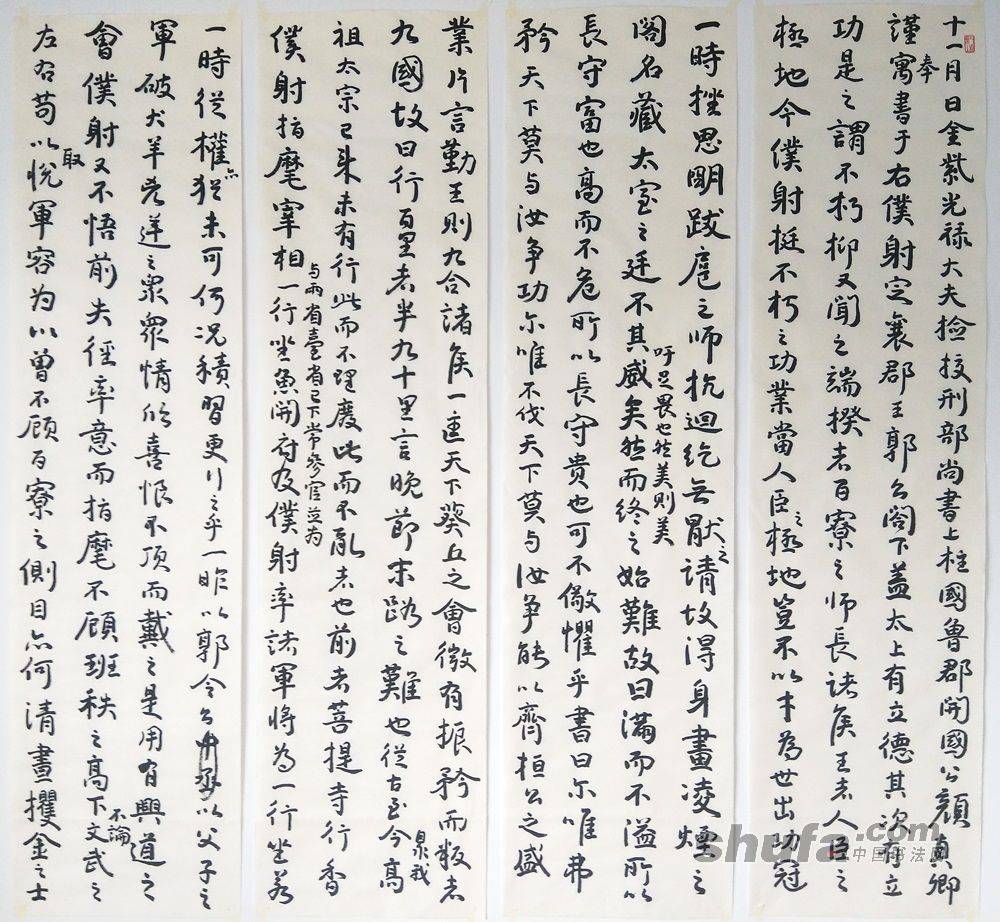 十一月日金紫光禄大夫撿挍刑部尚書上柱國魯郡開國公顏真卿
謹奉寓書于右僕射定襄郡王郭公閤下蓋太上有立德其次有立
功是之謂不朽抑又聞之端揆者百寮之師長諸侯王者人臣之
極地今僕射挺不朽之功業當人臣之極地豈不以才為世出功冠
一時挫思明跋扈之师抗迴紇無猒之請故得身畫凌煙之
閣名藏太室之廷吁足畏也然美則美不其盛矣然而終之始難故曰滿而不溢所以
長守富也高而不危所以長守貴也可不儆懼乎書曰尔唯弗
矜天下莫与汝争功尔唯不伐天下莫与汝争能以齊桓公之盛
業片言勤王則九合諸侯一匡天下葵丘之會微有振矜而叛者
九國故曰行百里者半九十里言晚節末路之難也從古至今泉我高
祖太宗已来未有行此而不理廢此而不亂者也前者菩提寺行香
僕射指麾宰相与兩省臺省已下常參官並为一行坐魚開府及僕射率諸軍將為一行坐若
一時從權亦猶未可何况積習更行之乎一昨以郭令公以父子之
軍破犬羊兇逆之眾眾情欣喜恨不頂而戴之是用有興道之
會僕射又不悟前失徑率意而指麾不顧班秩之高下不論文武之
左右苟以取悅軍容为心曾不顧百寮之側目亦何清晝攫金之士
shufa.com
中国书法网